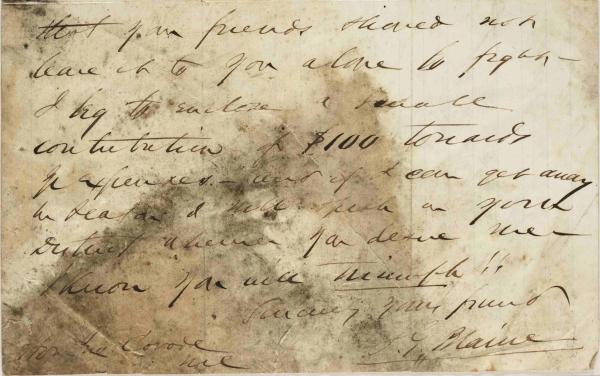 that your friends should not
leave it to you alone to fight –
I beg to enclose a small
contribution of $100 towards
yr expenses. – and if I can get away
in season I will speak in your
District whenever you desire me –
I know you will triumph!!
Sincerely your friend
J. G. Blaine
Hon Jno Covode